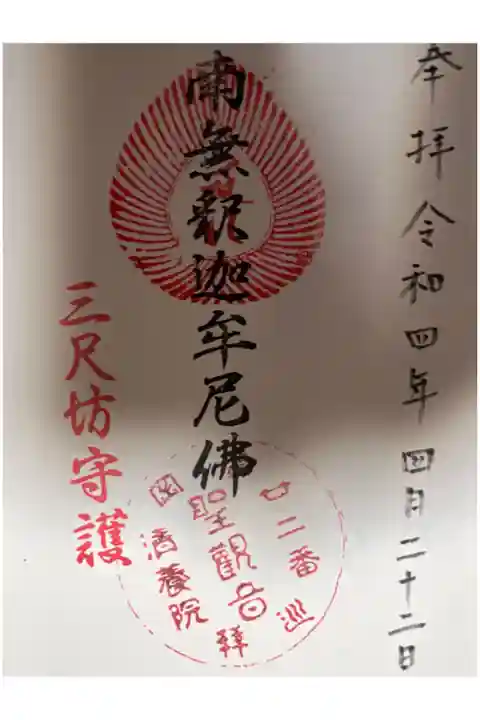 奉拝 令和四年四月二十二日
南無釈迦牟尼佛
三尺坊守護
廿二番
聖觀音
活養院
巡拜